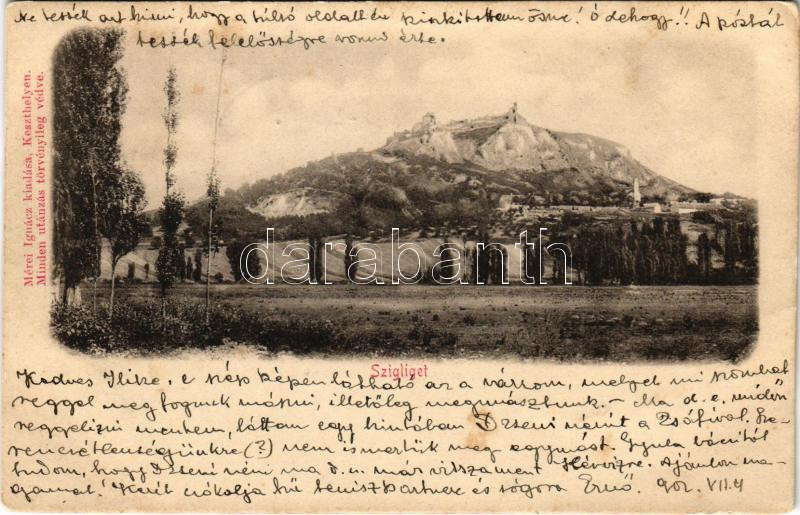 Ne tessék azt hinni, hogy a túlsó oldallén kinkitettem őszne! ó dehogy!! A póstát
tessék felelősségre vonni érte.
Mérei Ignácz kiadása, Keszthelyen.
Minden utánzás törvényileg védve.
darabanth
Szigliget
Kedves Ilike, e szép képen látható az a várrom, melyet mi szombat
reggel meg fogunk mászni, illetőleg megmásztunk. - Ma d. e. midőn
reggelizni mentem, láttam egy hintóban Dzseni nénit a Zsófival. Sze-
rencsétlenségünkre (?) nem ismertük meg egymást. Gyula bácsitól
tudom, hogy Dzseni néni ma d. u. már visszament Hévízre. Ajánlom ma-
gamat! Kezét csókolja hű tenisz partnere és sógora Ernő. 902. VII. 4